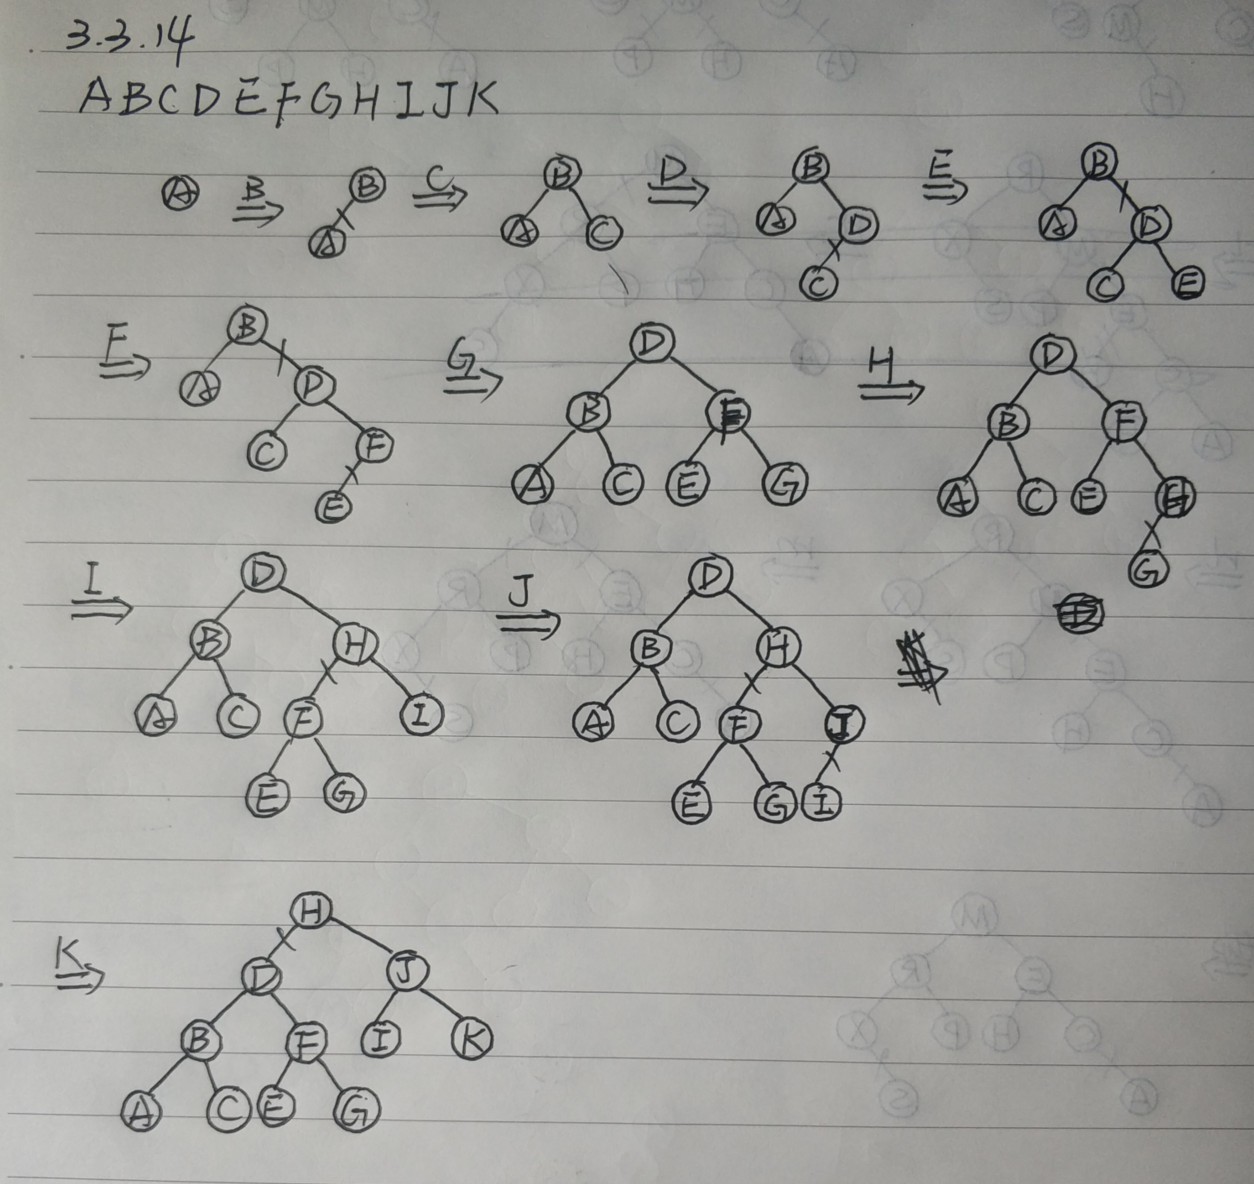 3.3.14
A B C D E F G H I J K
A B B A C B A C D B A D C E B A D C E
F B A D C F E G D B F A C E G H D B F A C E H G
I D B H A C F I E G J D B H A C F J E G I
K H D J B F I K A C E G